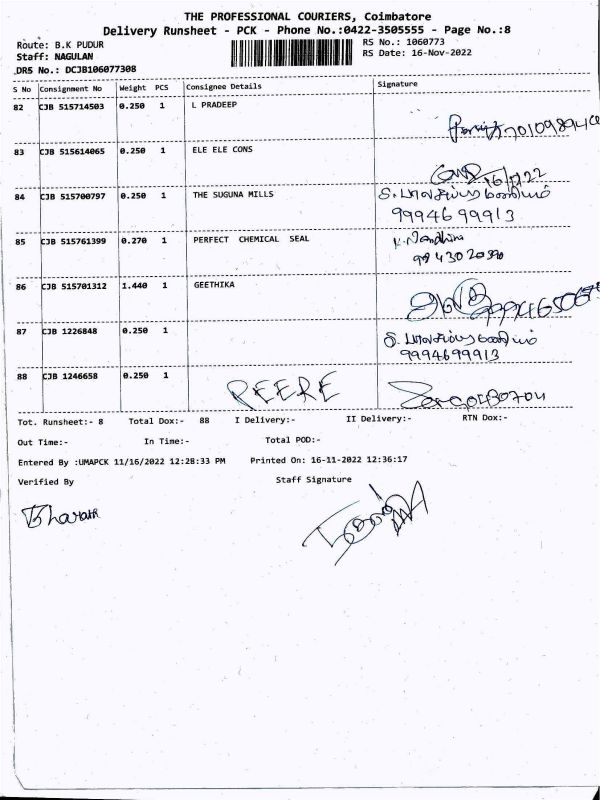 THE PROFESSIONAL COURIERS, Coimbatore
Delivery Runsheet - PCK - Phone No.:0422-3505555 - Page No.:8
Route: B.K PUDUR
RS No.: 1060773
Staff: NAGULAN
RS Date: 16-Nov-2022
DRS No.: DCJB106077308
S No Consignment No Weight PCS Consignee Details Signature
82 CJB 515714503 0.250 1 L PRADEEP
83 CJB 515614065 0.250 1 ELE ELE CONS
84 CJB 515700797 0.250 1 THE SUGUNA MILLS
9994699913
85 CJB 515761399 0.270 1 PERFECT CHEMICAL SEAL K.Nandhini
86 CJB 515701312 1.440 1 GEETHIKA
87 CJB 1226848 0.250 1
9994699913
88 CJB 1246658 0.250 1 PEERE
Tot. Runsheet:- 8 Total Dox:- 88 I Delivery:- II Delivery:- RTN Dox:-
Out Time:- In Time:- Total POD:-
Entered By :UMAPCK 11/16/2022 12:28:33 PM Printed On: 16-11-2022 12:36:17
Verified By Staff Signature
Bharath